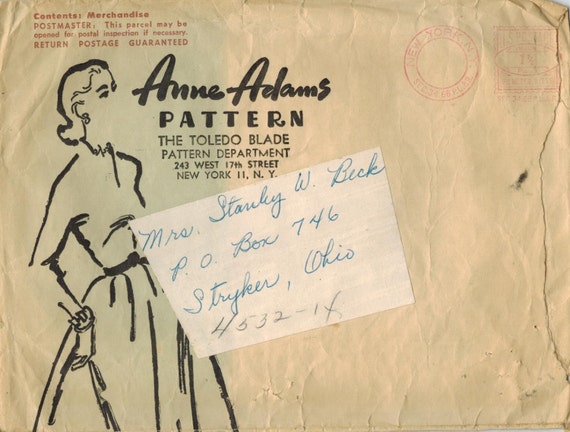 Contents: Merchandise
POSTMASTER: This parcel may be
opened for postal inspection if necessary.
RETURN POSTAGE GUARANTEED
Anne Adams
PATTERN
THE TOLEDO BLADE
PATTERN DEPARTMENT
243 WEST 17th STREET
NEW YORK 11, N. Y.
NEW YORK, N.Y.
Mrs. Stanley W. Beck
P. O. Box 746
Stryker, Ohio
4532-14